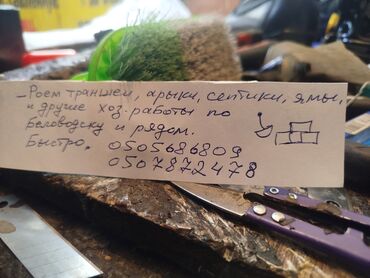 – Роем траншеи, арыки, септики, ямы,
и другие хоз. работы по
Беловодску и рядом.
Быстро. 0505686809
0507872478